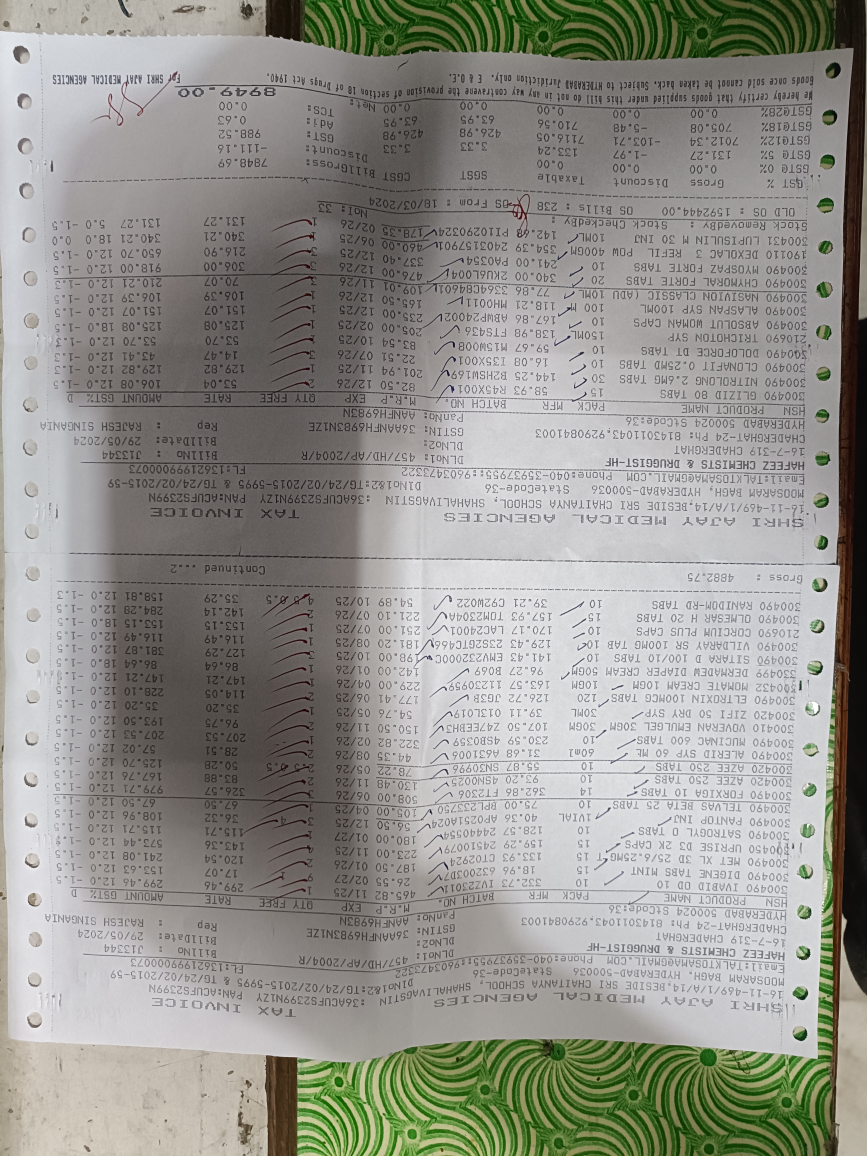 SHRI AJAY MEDICAL AGENCIES TAX INVOICE
16-11-469/1/A/14,BESIDE SRI CHAITANYA SCHOOL, SHAHALIVAGSTIN :36ACUFS2399N1ZY PAN:ACUFS2399N
MOOSARAM BAGH, HYDERABAD-500036 StateCode-36 DlNo1&2:TG/24/02/2015-5995 & TG/24/02/2015-59
Email:TALKTOSAMA@GMAIL.COM Phone:040-35937955;9603473322 FL:13621999000073
HAFEEZ CHEMISTS & DRUGGIST-HF DLNo1: 457/HD/AP/2004/R BillNO : J13344
16-7-319 CHADERGHAT DLNo2: BillDate: 29/05/2024
CHADERGHAT-24 Ph: 8143011043,9290841003 GSTIN: 36AANFH6983N1ZE Rep : RAJESH SINGANIA
HYDERABAD 500024 StCode:36 PanNo: AANFH6983N
HSN PRODUCT NAME PACK MFR BATCH NO. M.R.P EXP QTY FREE RATE AMOUNT GST% D
300490 IVABID OD 10 10 332.73 IVZ23012 465.82 11/25 1 299.46 299.46 12.0 -1.5
300490 DIGENE TABS MINT 15 18.96 632003D7 26.55 02/27 9 17.07 153.63 12.0 -1.5
300490 MET XL 3D 25/6.25MG T 15 133.93 CTO2924 187.50 01/26 2 120.54 241.08 12.0 -1.5
300450 UPRISE D3 2K CAPS 15 159.29 24510079 223.00 11/25 4 143.36 573.44 12.0 -1.5
300490 SATROGYL O TABS 10 128.57 24440454 180.00 01/27 1 115.71 115.71 12.0 -1.5
300490 PANTOP INJ VIAL 40.36 AP0251A024 56.50 12/25 3 36.32 108.96 12.0 -1.5
300490 TELVAS BETA 25 TABS 10 75.00 BPL233750 105.00 04/25 1 67.50 67.50 12.0 -1.5
300490 FORXIGA 10 TABS 14 362.86 FT2306 508.00 06/26 3 326.57 979.71 12.0 -1.5
300420 AZEE 250 TABS 10 93.20 4SN0025 130.48 11/26 2 83.88 167.76 12.0 -1.5
300420 AZEE 250 TABS 10 55.87 SN30996 78.22 05/26 50.28 125.70 12.0 -1.5
300490 ALERID SYP 60 ML 60ml 31.68 A631006 44.35 08/26 2 28.51 57.02 12.0 -1.5
300490 MUCINAC 600 TABS 10 230.59 4SD0359 322.82 02/26 1 207.53 207.53 12.0 -1.5
300410 VOVERAN EMULGEL 30GM 30GM 107.50 ZA7EEBH3 150.50 11/26 2 96.75 193.50 12.0 -1.5
300420 ZIFI 50 DRY SYP 30ML 39.11 013L019 54.76 05/25 1 35.20 35.20 12.0 -1.5
300490 ELTROXIN 100MCG TABS 120 126.72 JG3B3 177.41 06/25 2 114.05 228.10 12.0 -1.5
300432 MOMATE CREAM 10GM 10GM 163.57 11230959 229.00 04/26 1 147.21 147.21 12.0 -1.5
330499 DERMADEW DIAPER CREAM 50GM 96.27 B069 142.00 01/26 1 86.64 86.64 18.0 -1.5
300490 SITARA D 100/10 TABS 10 141.43 EMV232000C 198.00 10/25 3 127.29 381.87 12.0 -1.5
300490 VILDARAY SR 100MG TAB 10 129.43 23S2GTC466 181.20 08/25 1 116.49 116.49 12.0 -1.5
210690 CORCIUM PLUS CAPS 10 170.17 LAC24001 251.00 07/25 1 153.15 153.15 18.0 -1.5
300490 OLMESAR H 20 TABS 15 157.93 TOM2304A 221.10 07/26 2 142.14 284.28 12.0 -1.5
300490 RANIDOM-RD TABS 10 39.21 C92W022 54.89 10/25 4.5 0.5 35.29 158.81 12.0 -1.3
Gross : 4882.75 Continued ...2
SHRI AJAY MEDICAL AGENCIES TAX INVOICE
16-11-469/1/A/14,BESIDE SRI CHAITANYA SCHOOL, SHAHALIVAGSTIN :36ACUFS2399N1ZY PAN:ACUFS2399N
MOOSARAM BAGH, HYDERABAD-500036 StateCode-36 DlNo1&2:TG/24/02/2015-5995 & TG/24/02/2015-59
Email:TALKTOSAMA@GMAIL.COM Phone:040-35937955;9603473322 FL:13621999000073
HAFEEZ CHEMISTS & DRUGGIST-HF DLNo1: 457/HD/AP/2004/R BillNO : J13344
16-7-319 CHADERGHAT DLNo2: BillDate: 29/05/2024
CHADERGHAT-24 Ph: 8143011043,9290841003 GSTIN: 36AANFH6983N1ZE Rep : RAJESH SINGANIA
HYDERABAD 500024 StCode:36 PanNo: AANFH6983N
HSN PRODUCT NAME PACK MFR BATCH NO. M.R.P EXP QTY FREE RATE AMOUNT GST% D
300490 GLIZID 80 TABS 15 58.93 R45X001 82.50 12/26 2 53.04 106.08 12.0 -1.5
300490 NITROLONG 2.6MG TABS 30 144.25 B2HSW169 201.94 11/25 1 129.82 129.82 12.0 -1.3
300490 CLONAFIT 0.25MD TABS 10 16.08 135X001 22.51 07/26 3 14.47 43.41 12.0 -1.3
300490 DOLOFORCE DT TABS 10 59.67 M15W008 83.54 10/25 1 53.70 53.70 12.0 -1.3
210690 TRICHOTON SYP 150ML 138.98 FTS436 205.00 02/25 1 125.08 125.08 18.0 -1.5
300490 ABSOLUT WOMAN CAPS 10 167.86 ABWP24002 235.00 12/25 1 151.07 151.07 12.0 -1.5
300490 ALASPAN SYP 100ML 100 M 118.21 MHO011 165.50 12/26 1 106.39 106.39 12.0 -1.5
300490 NASIVION CLASSIC (ADU 10ML 77.86 3364C84601 109.01 11/26 3 70.07 210.21 12.0 -1.3
300490 CHYMORAL FORTE TABS 20 340.00 2KUGL004 476.00 12/26 3 306.00 918.00 12.0 -1.5
300490 MYOSPAZ FORTE TABS 10 241.00 PA0354 337.40 12/26 3 216.90 650.70 12.0 -1.5
190110 DEXOLAC 3 REFIL POW 400GM 354.39 2403157901 460.00 06/25 1 340.21 340.21 18.0 0.0
300431 LUPISULIN M 30 INJ 10ML 142.68 PI10290324 178.35 02/26 1 131.27 131.27 5.0 -1.5
Stock RemovedBy: Stock CheckedBy: NoI: 33
OLD OS : 1592444.00 OS Bills : 238 OS From : 18/03/2024
GST % Gross Discount Taxable SGST CGST BillGross: 7848.69
GST@ 0% 0.00 0.00 Discount -111.16
GST@ 5% 131.27 -1.97 133.24 3.33 3.33 GST: 988.52
GST@12% 7012.34 -103.71 7116.05 426.98 426.98 Adj 0.63
GST@18% 705.08 -5.48 710.56 63.95 63.95 TCS: 0.00
GST@28% 0.00 0.00 0.00 0.00 0.00 Net: 8949.00
We hereby certify that goods supplied under this bill do not in any way contravene the provision of section 18 of Drugs Act 1940.
Goods once sold cannot be taken back. Subject to HYDERABAD Jurdiction only. E & O.E. For SHRI AJAY MEDICAL AGENCIES